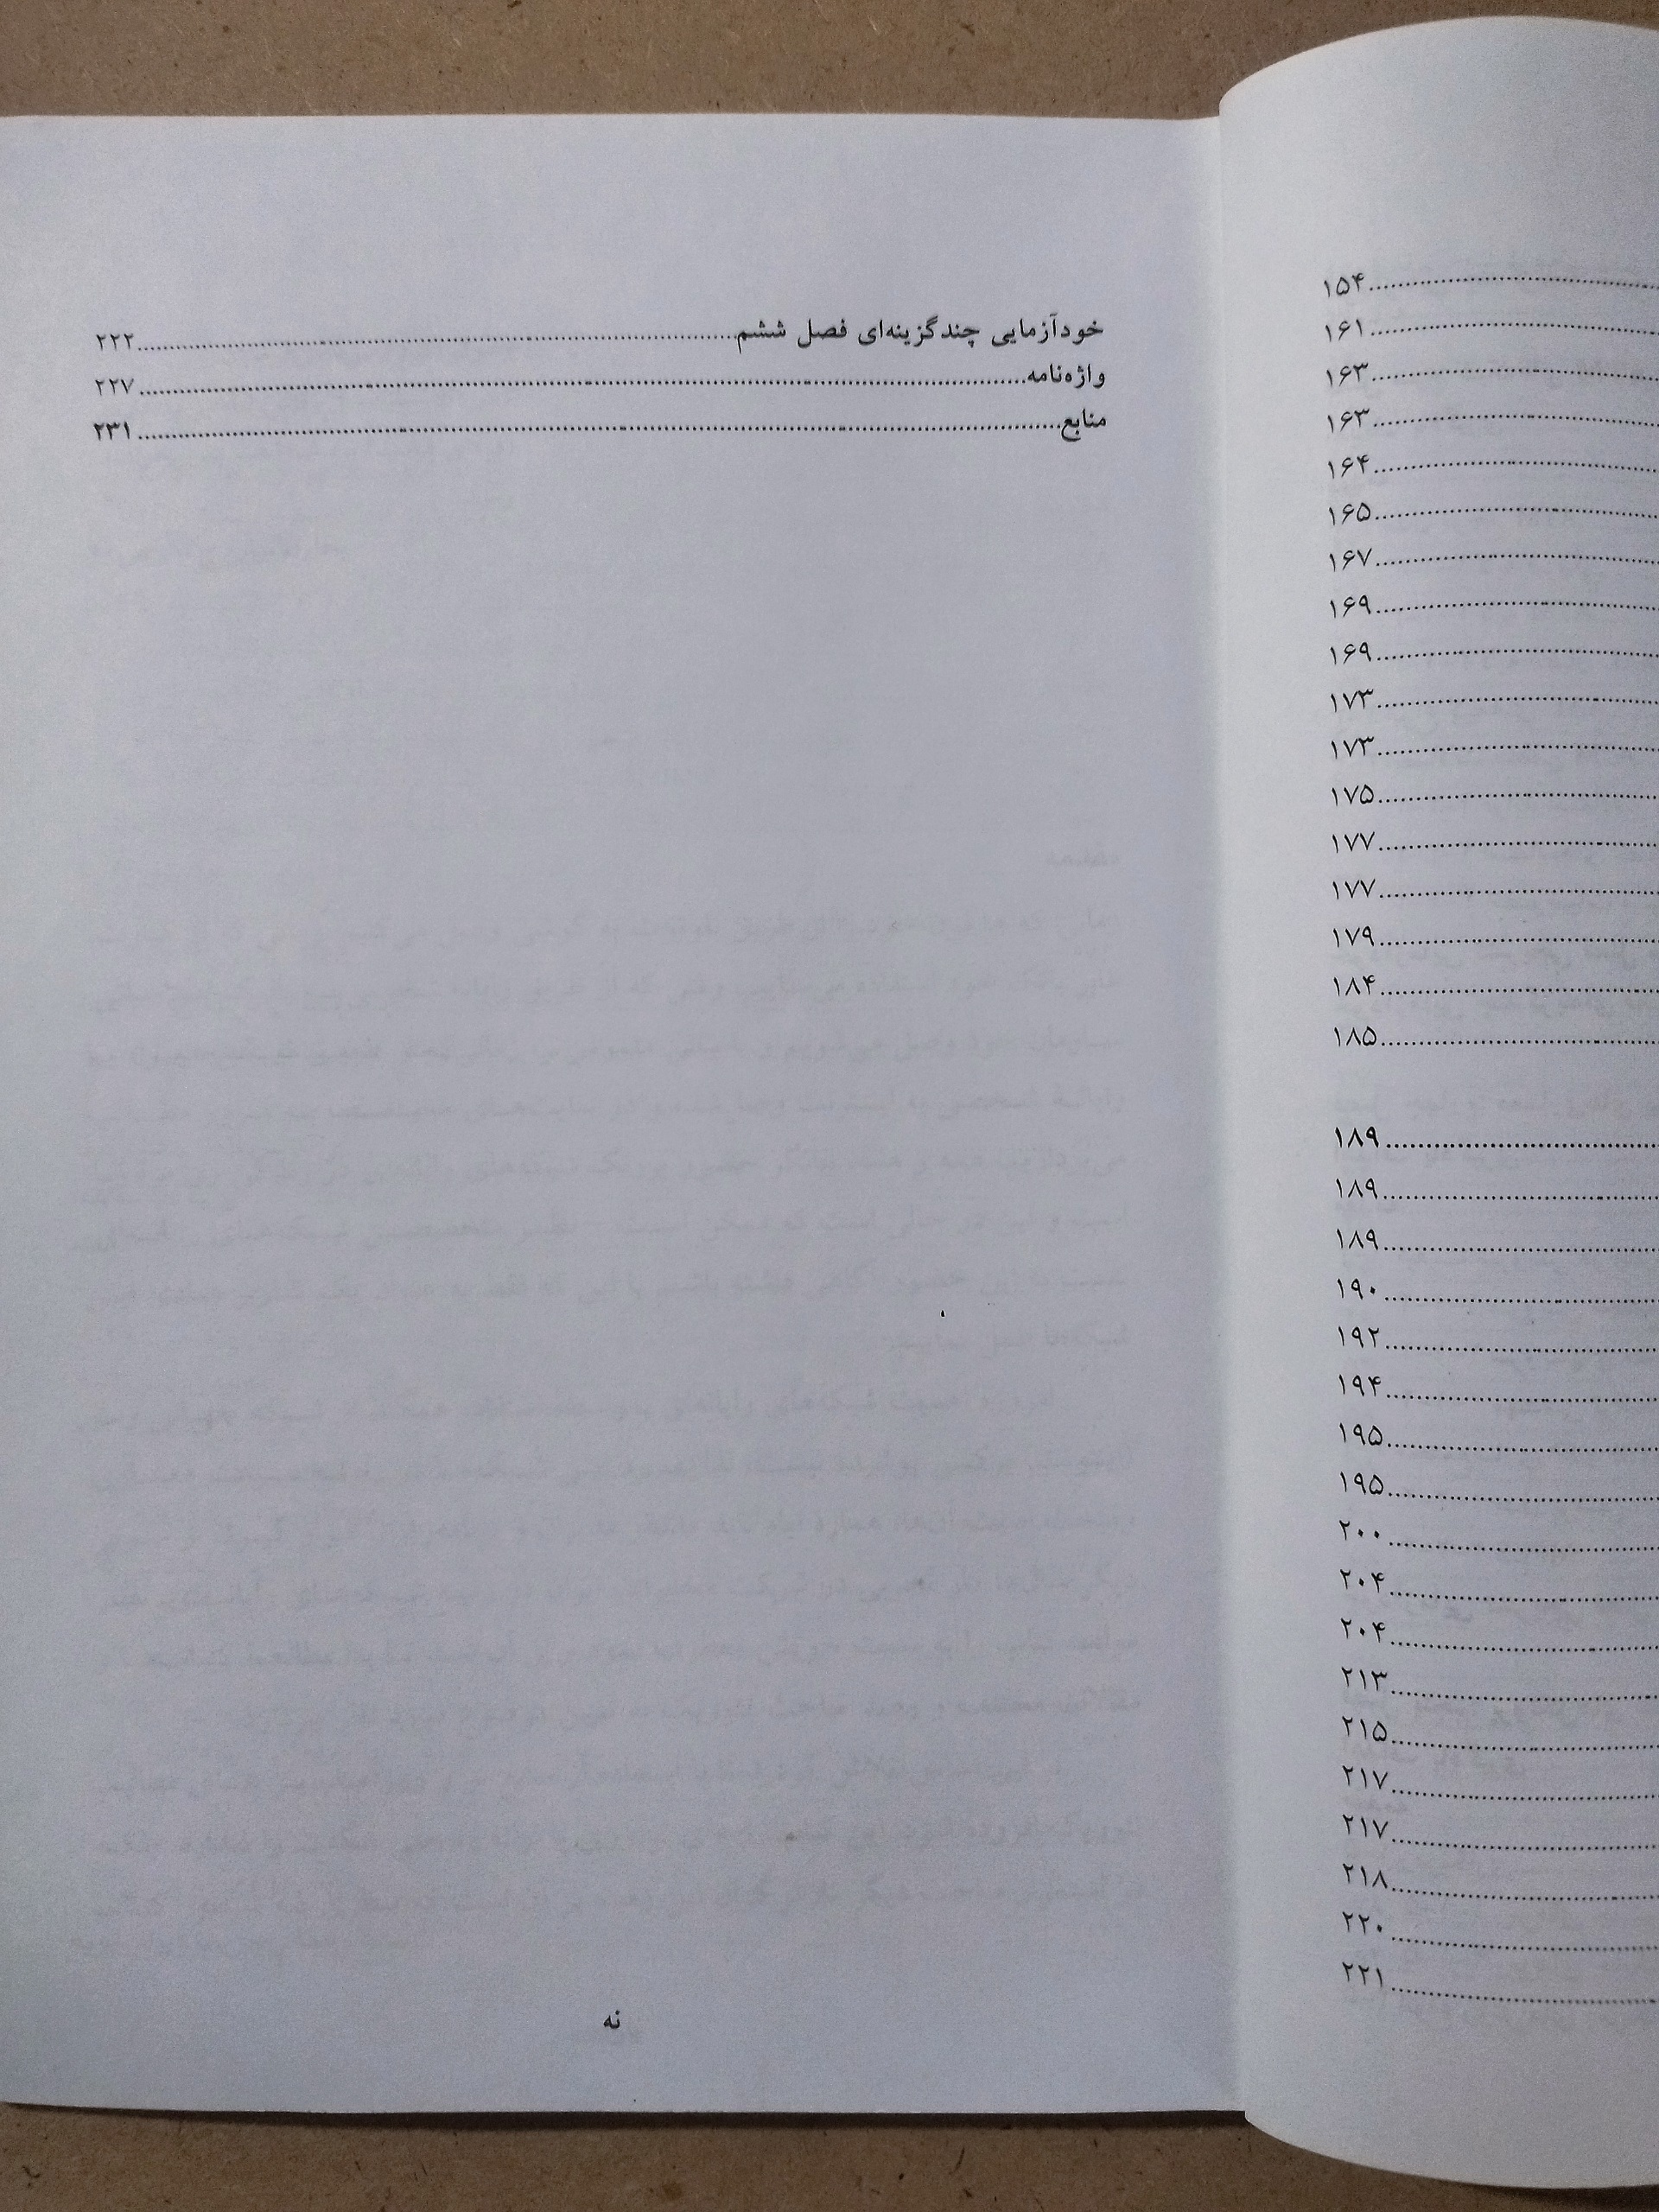 ۱۵۴
۱۶۱
۱۶۳
۱۶۳
۱۶۴
۱۶۵
۱۶۷
۱۶۹
۱۶۹
۱۷۳
۱۷۳
۱۷۵
۱۷۷
۱۷۷
۱۷۹
۱۸۴
۱۸۵
۱۸۹
۱۸۹
۱۸۹
۱۹۰
۱۹۲
۱۹۴
۱۹۵
۱۹۵
۲۰۰
۲۰۴
۲۰۴
۲۱۳
۲۱۵
۲۱۷
۲۱۷
۲۱۸
۲۲۰
۲۲۱
خودآزمایی چندگزینه‌ای فصل ششم ۲۲۲
واژه‌نامه ۲۲۷
منابع ۲۳۱
نه